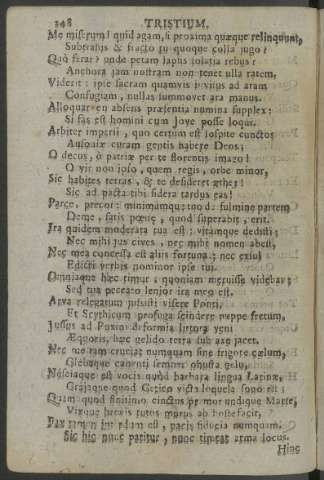 348 TRISTIUM.
Me miserum! quid agam, si proxima quæque relinquunt,
Subtrahis & fracto tu quoque colla jugo?
Quò ferar? unde petam lapsis solatia rebus?
Anchora jam nostram non tenet ulla ratem,
Viderit: ipse sacram quamvis invisus ad aram
Confugiam, nullas summovet ara manus.
Alloquor en absens præsentia numina supplex:
Si fas est homini cum Jove posse loqui.
Arbiter imperii, quo certum est sospite cunctos
Ausoniæ curam gentis habere Deos;
O decus, ô patriæ per te florentis imago!
O vir non ipso, quem regis, orbe minor,
Sic habites terras, & te desideret æther;
Sic ad pacta tibi sidera tardus eas!
Parce, precor: minimamque tuo de fulmine partem
Deme, satis pœnæ, quod superabit, erit.
Ira quidem moderata tua est: vitamque dedisti;
Nec mihi jus cives, nec mihi nomen abest,
Nec mea concessa est aliis fortuna: nec exul
Edicti verbis nominor ipse tui.
Omniaque hæc timui, quoniam meruisse videbar;
Sed tua peccato lenior ira meo est.
Arva relegatum jussisti visere Ponti,
Et Scythicum profuga scindere puppe fretum,
Jussus ad Euxini deformia littora veni
Æquoris, hæc gelido terra sub axe jacet.
Nec me tam cruciat numquam sine frigore cælum,
Glebaque canenti semper obusta gelu,
Nesciaque est vocis quòd barbara lingua Latinæ,
Grajaque quod Getico victa loquela sono est:
Quam quod finitimo cinctus premor undique Marte,
Vixque brevis tutos murus ab hoste facit,
Pax tamen interdum est, pacis fiducia numquam.
Sic hic nunc patitur, nunc timeat arma locus.
Hinc